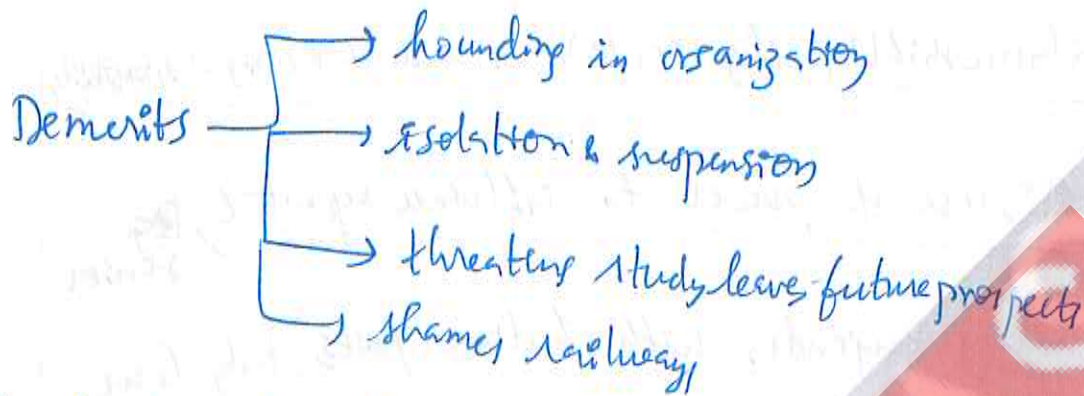 Demerits
hounding in organization
Isolation & suspension
threating study leaves future prospects
shames railway